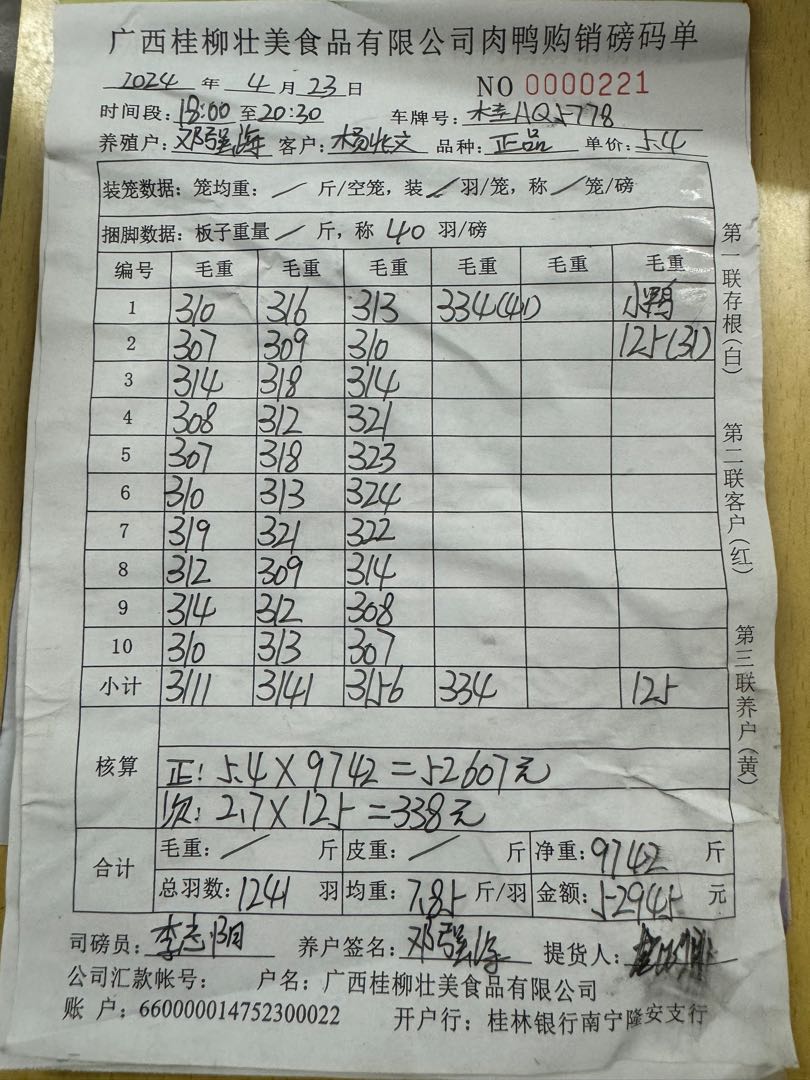 广西桂柳壮美食品有限公司肉鸭购销磅码单
2024 年 4 月 23 日 NO 0000221
时间段: 18:00 至 20:30 车牌号: 桂AQJ778
养殖户: 邓强海 客户: 杨 文 品种: 正品 单价: 5.4
装笼数据: 笼均重: / 斤/空笼, 装 / 羽/笼, 称 / 笼/磅
捆脚数据: 板子重量 / 斤, 称 40 羽/磅
编号 毛重 毛重 毛重 毛重 毛重 毛重
1 310 316 313 334(41) 小鸭
2 307 309 310 125(31)
3 314 318 314
4 308 312 321
5 307 318 323
6 310 313 324
7 319 321 322
8 312 309 314
9 314 312 308
10 310 313 307
小计 3111 3141 3156 334 125
核算
正: 5.4×9742=52607元
次: 2.7×125=338元
合计
毛重: / 斤 皮重: / 斤 净重: 9742 斤
总羽数: 1241 羽 均重: 7.85 斤/羽 金额: 52945 元
司磅员: 李志 养户签名: 邓强海 提货人:
公司汇款帐号: 户名: 广西桂柳壮美食品有限公司
账 户: 660000014752300022 开户行: 桂林银行南宁隆安支行
第一联存根(白)
第二联客户(红)
第三联养户(黄)